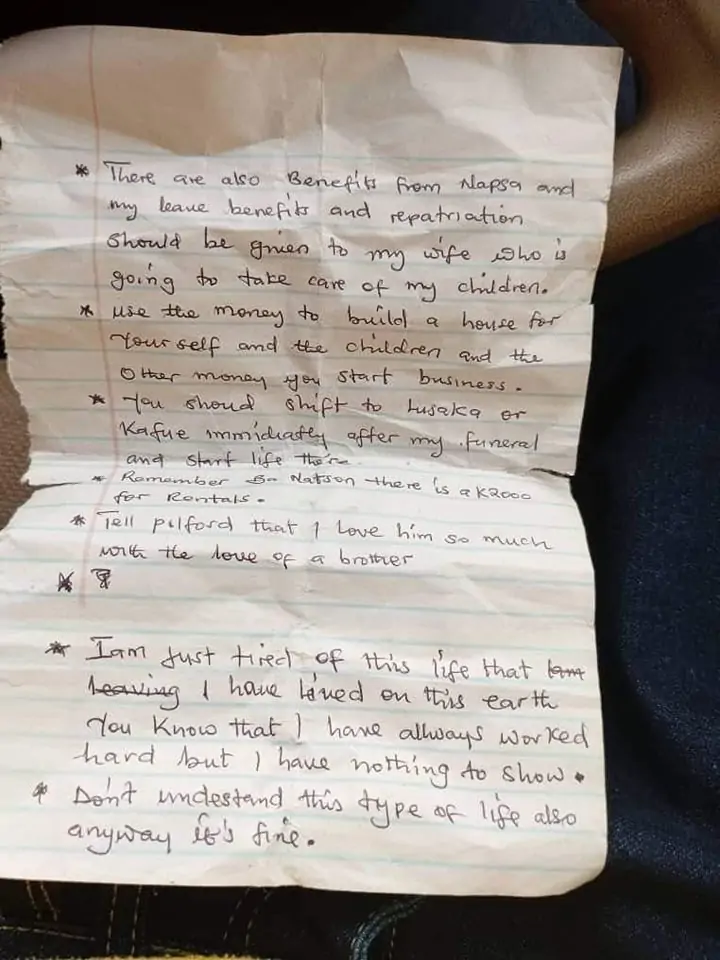 * There are also Benefits from Napsa and
my leave benefits and repatriation
should be given to my wife who is
going to take care of my children.
* use the money to build a house for
Yourself and the children and the
Other money you start business.
* You shoud shift to Lusaka or
Kafue immidiatly after my funeral
and start life there
* Remember Natson there is a K2000
for Rentals.
* Tell pilford that I love him so much
with the love of a brother
*
* I am just tired of this life that
leaving I have lived on this earth
You Know that I have allways worked
hard but I have nothing to show.
* Don't undestand this type of life also
anyway it's fine.